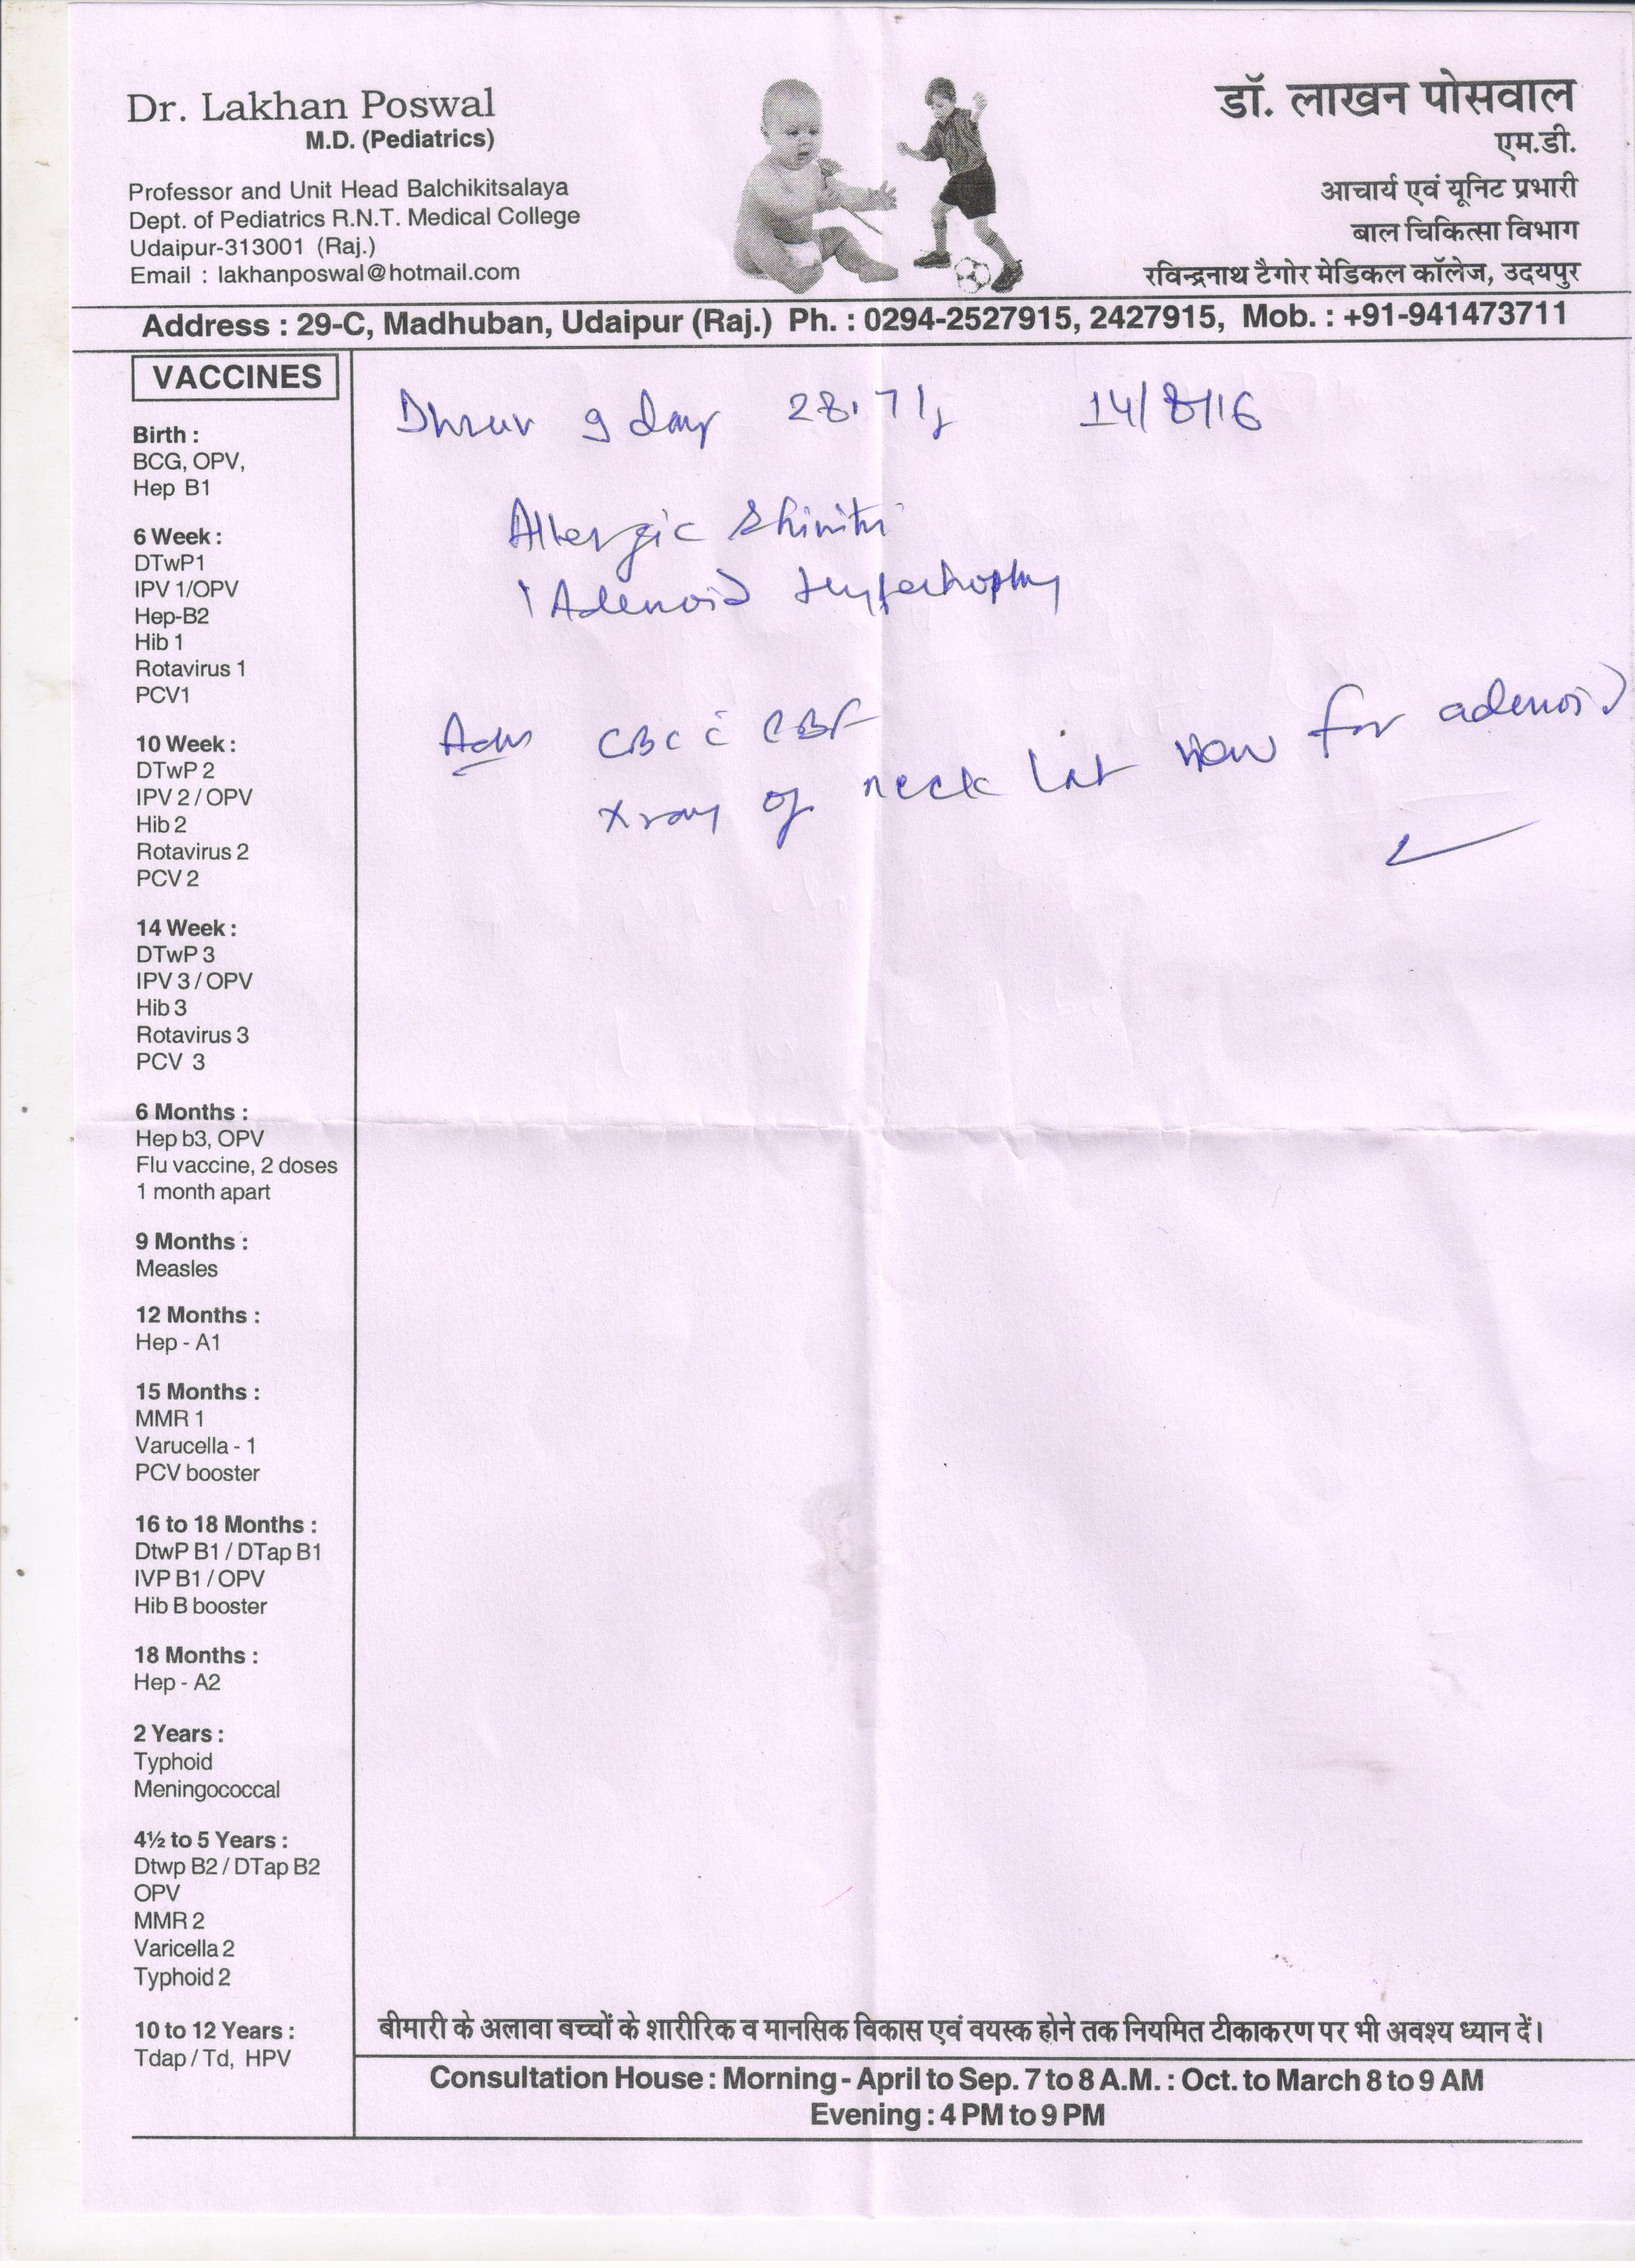 Dr. Lakhan Poswal
M.D. (Pediatrics)
Professor and Unit Head Balchikitsalaya
Dept. of Pediatrics R.N.T. Medical College
Udaipur-313001 (Raj.)
Email : lakhanposwal@hotmail.com
डॉ. लाखन पोसवाल
एम.डी.
आचार्य एवं यूनिट प्रभारी
बाल चिकित्सा विभाग
रविन्द्रनाथ टैगोर मेडिकल कॉलेज, उदयपुर
Address : 29-C, Madhuban, Udaipur (Raj.) Ph. : 0294-2527915, 2427915, Mob. : +91-941473711
VACCINES
Birth :
BCG, OPV,
Hep B1
6 Week :
DTwP1
IPV 1/OPV
Hep-B2
Hib 1
Rotavirus 1
PCV1
10 Week :
DTwP 2
IPV 2 / OPV
Hib 2
Rotavirus 2
PCV 2
14 Week :
DTwP 3
IPV 3 / OPV
Hib 3
Rotavirus 3
PCV 3
6 Months :
Hep b3, OPV
Flu vaccine, 2 doses
1 month apart
9 Months :
Measles
12 Months :
Hep - A1
15 Months :
MMR 1
Varucella - 1
PCV booster
16 to 18 Months :
DtwP B1 / DTap B1
IVP B1 / OPV
Hib B booster
18 Months :
Hep - A2
2 Years :
Typhoid
Meningococcal
4½ to 5 Years :
Dtwp B2 / DTap B2
OPV
MMR 2
Varicella 2
Typhoid 2
10 to 12 Years :
Tdap / Td, HPV
Dhruv 9 28.7 14/8/16
Allergic Rhinitis
Adenoid Hypertrophy
Adv CBC c̄ PBF
xray of neck Lat view for adenoid
बीमारी के अलावा बच्चों के शारीरिक व मानसिक विकास एवं वयस्क होने तक नियमित टीकाकरण पर भी अवश्य ध्यान दें।
Consultation House : Morning - April to Sep. 7 to 8 A.M. : Oct. to March 8 to 9 AM
Evening : 4 PM to 9 PM